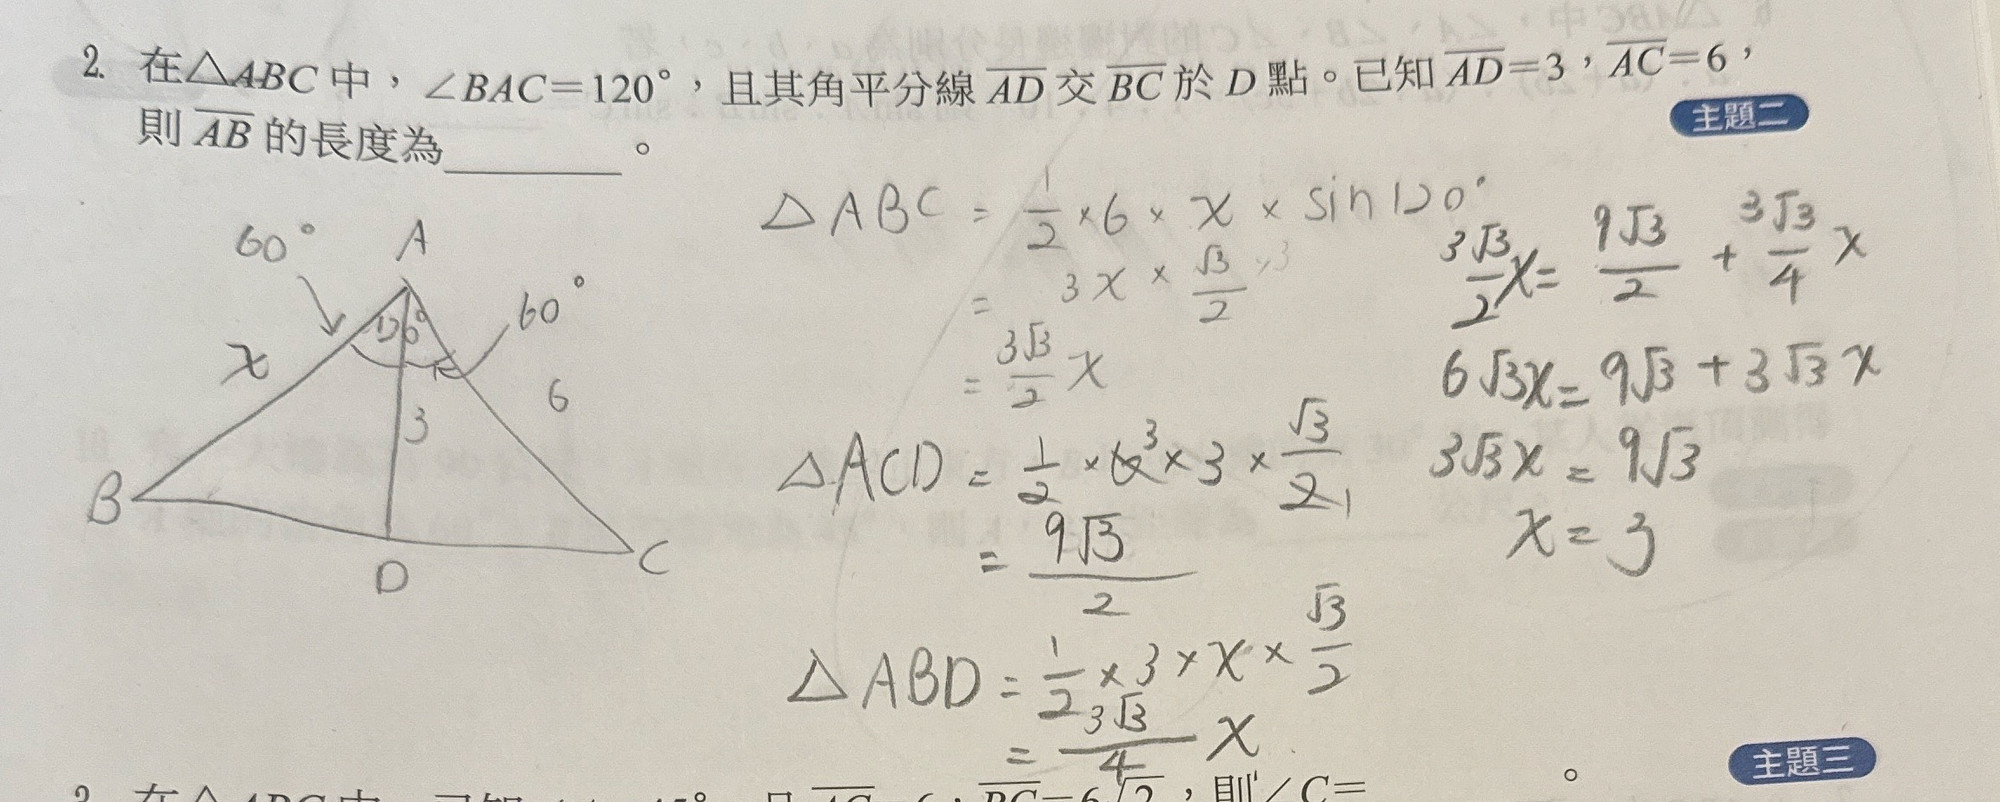 2. 在△ABC中，∠BAC=120°，且其角平分線AD交BC於D點。已知AD=3，AC=6，
則AB的長度為______。
主題二
60°
A
120°
60°
x
3
6
B
D
C
△ABC = 1/2 × 6 × x × sin120°
= 3x × √3/2
= 3√3/2 x
△ACD = 1/2 × 6 3 × 3 × √3/2 1
= 9√3/2
△ABD = 1/2 × 3 × x × √3/2
= 3√3/4 x
3√3/2 x = 9√3/2 + 3√3/4 x
6√3x = 9√3 + 3√3 x
3√3x = 9√3
x = 3
。
主題三
，則∠C=